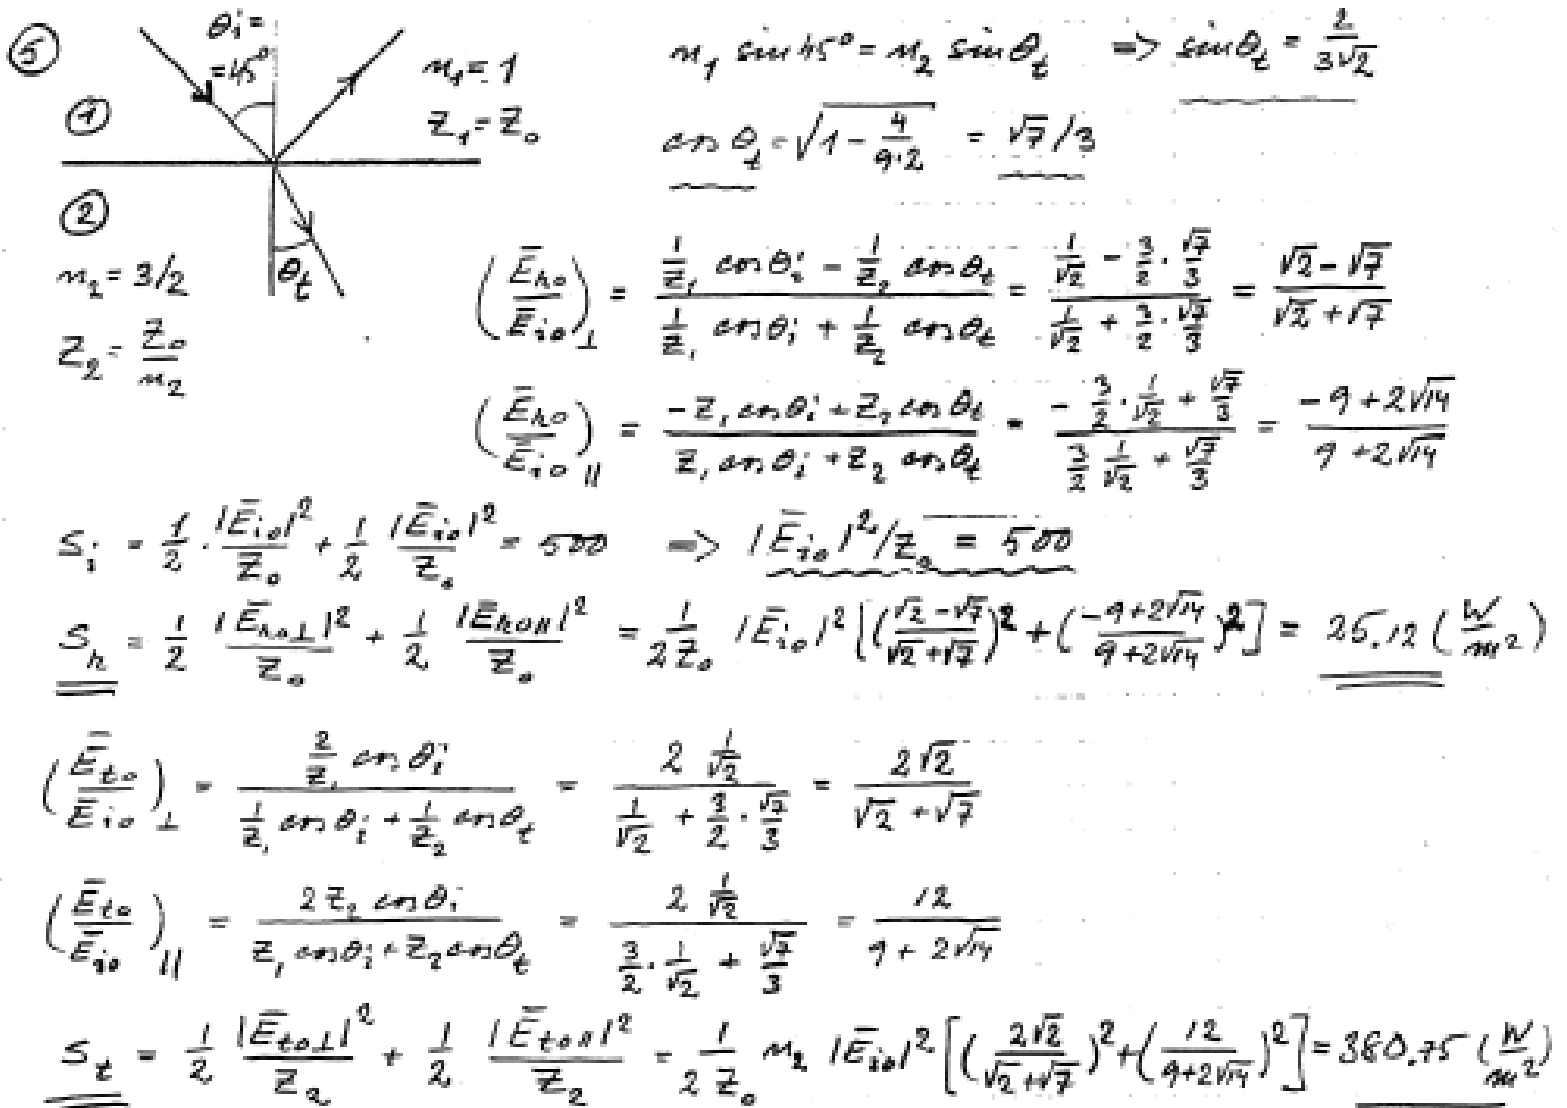 ⑤ θi = = 45° n₁ = 1 n₁ sin 45° = n₂ sin θt => sin θt = 2/(3√2)
① Z₁ = Z₀ cos θt = √(1 - 4/(9·2)) = √7/3
②
n₂ = 3/2 θt (Ēro/Ēio)⊥ = (1/Z₁ cos θi - 1/Z₂ cos θt)/(1/Z₁ cos θi + 1/Z₂ cos θt) = (1/√2 - 3/2 · √7/3)/(1/√2 + 3/2 · √7/3) = (√2 - √7)/(√2 + √7)
Z₂ = Z₀/n₂
(Ēro/Ēio)∥ = (-Z₁ cos θi + Z₂ cos θt)/(Z₁ cos θi + Z₂ cos θt) = (-3/2 · 1/√2 + √7/3)/(3/2 1/√2 + √7/3) = (-9 + 2√14)/(9 + 2√14)
Si = 1/2 · |Ēio|²/Z₀ + 1/2 |Ēio|²/Z₀ = 500 => |Ēio|²/Z₀ = 500
Sr = 1/2 |Ēro⊥|²/Z₀ + 1/2 |Ēro∥|²/Z₀ = 1/(2Z₀) |Ēio|² [((√2 - √7)/(√2 + √7))² + ((-9 + 2√14)/(9 + 2√14))²] = 25.12 (W/m²)
(Ēto/Ēio)⊥ = (2/Z₁ cos θi)/(1/Z₁ cos θi + 1/Z₂ cos θt) = (2 1/√2)/(1/√2 + 3/2 · √7/3) = 2√2/(√2 + √7)
(Ēto/Ēio)∥ = (2Z₂ cos θi)/(Z₁ cos θi + Z₂ cos θt) = (2 1/√2)/(3/2 · 1/√2 + √7/3) = 12/(9 + 2√14)
St = 1/2 |Ēto⊥|²/Z₂ + 1/2 |Ēto∥|²/Z₂ = 1/(2Z₀) n₂ |Ēio|² [(2√2/(√2 + √7))² + (12/(9 + 2√14))²] = 380.75 (W/m²)